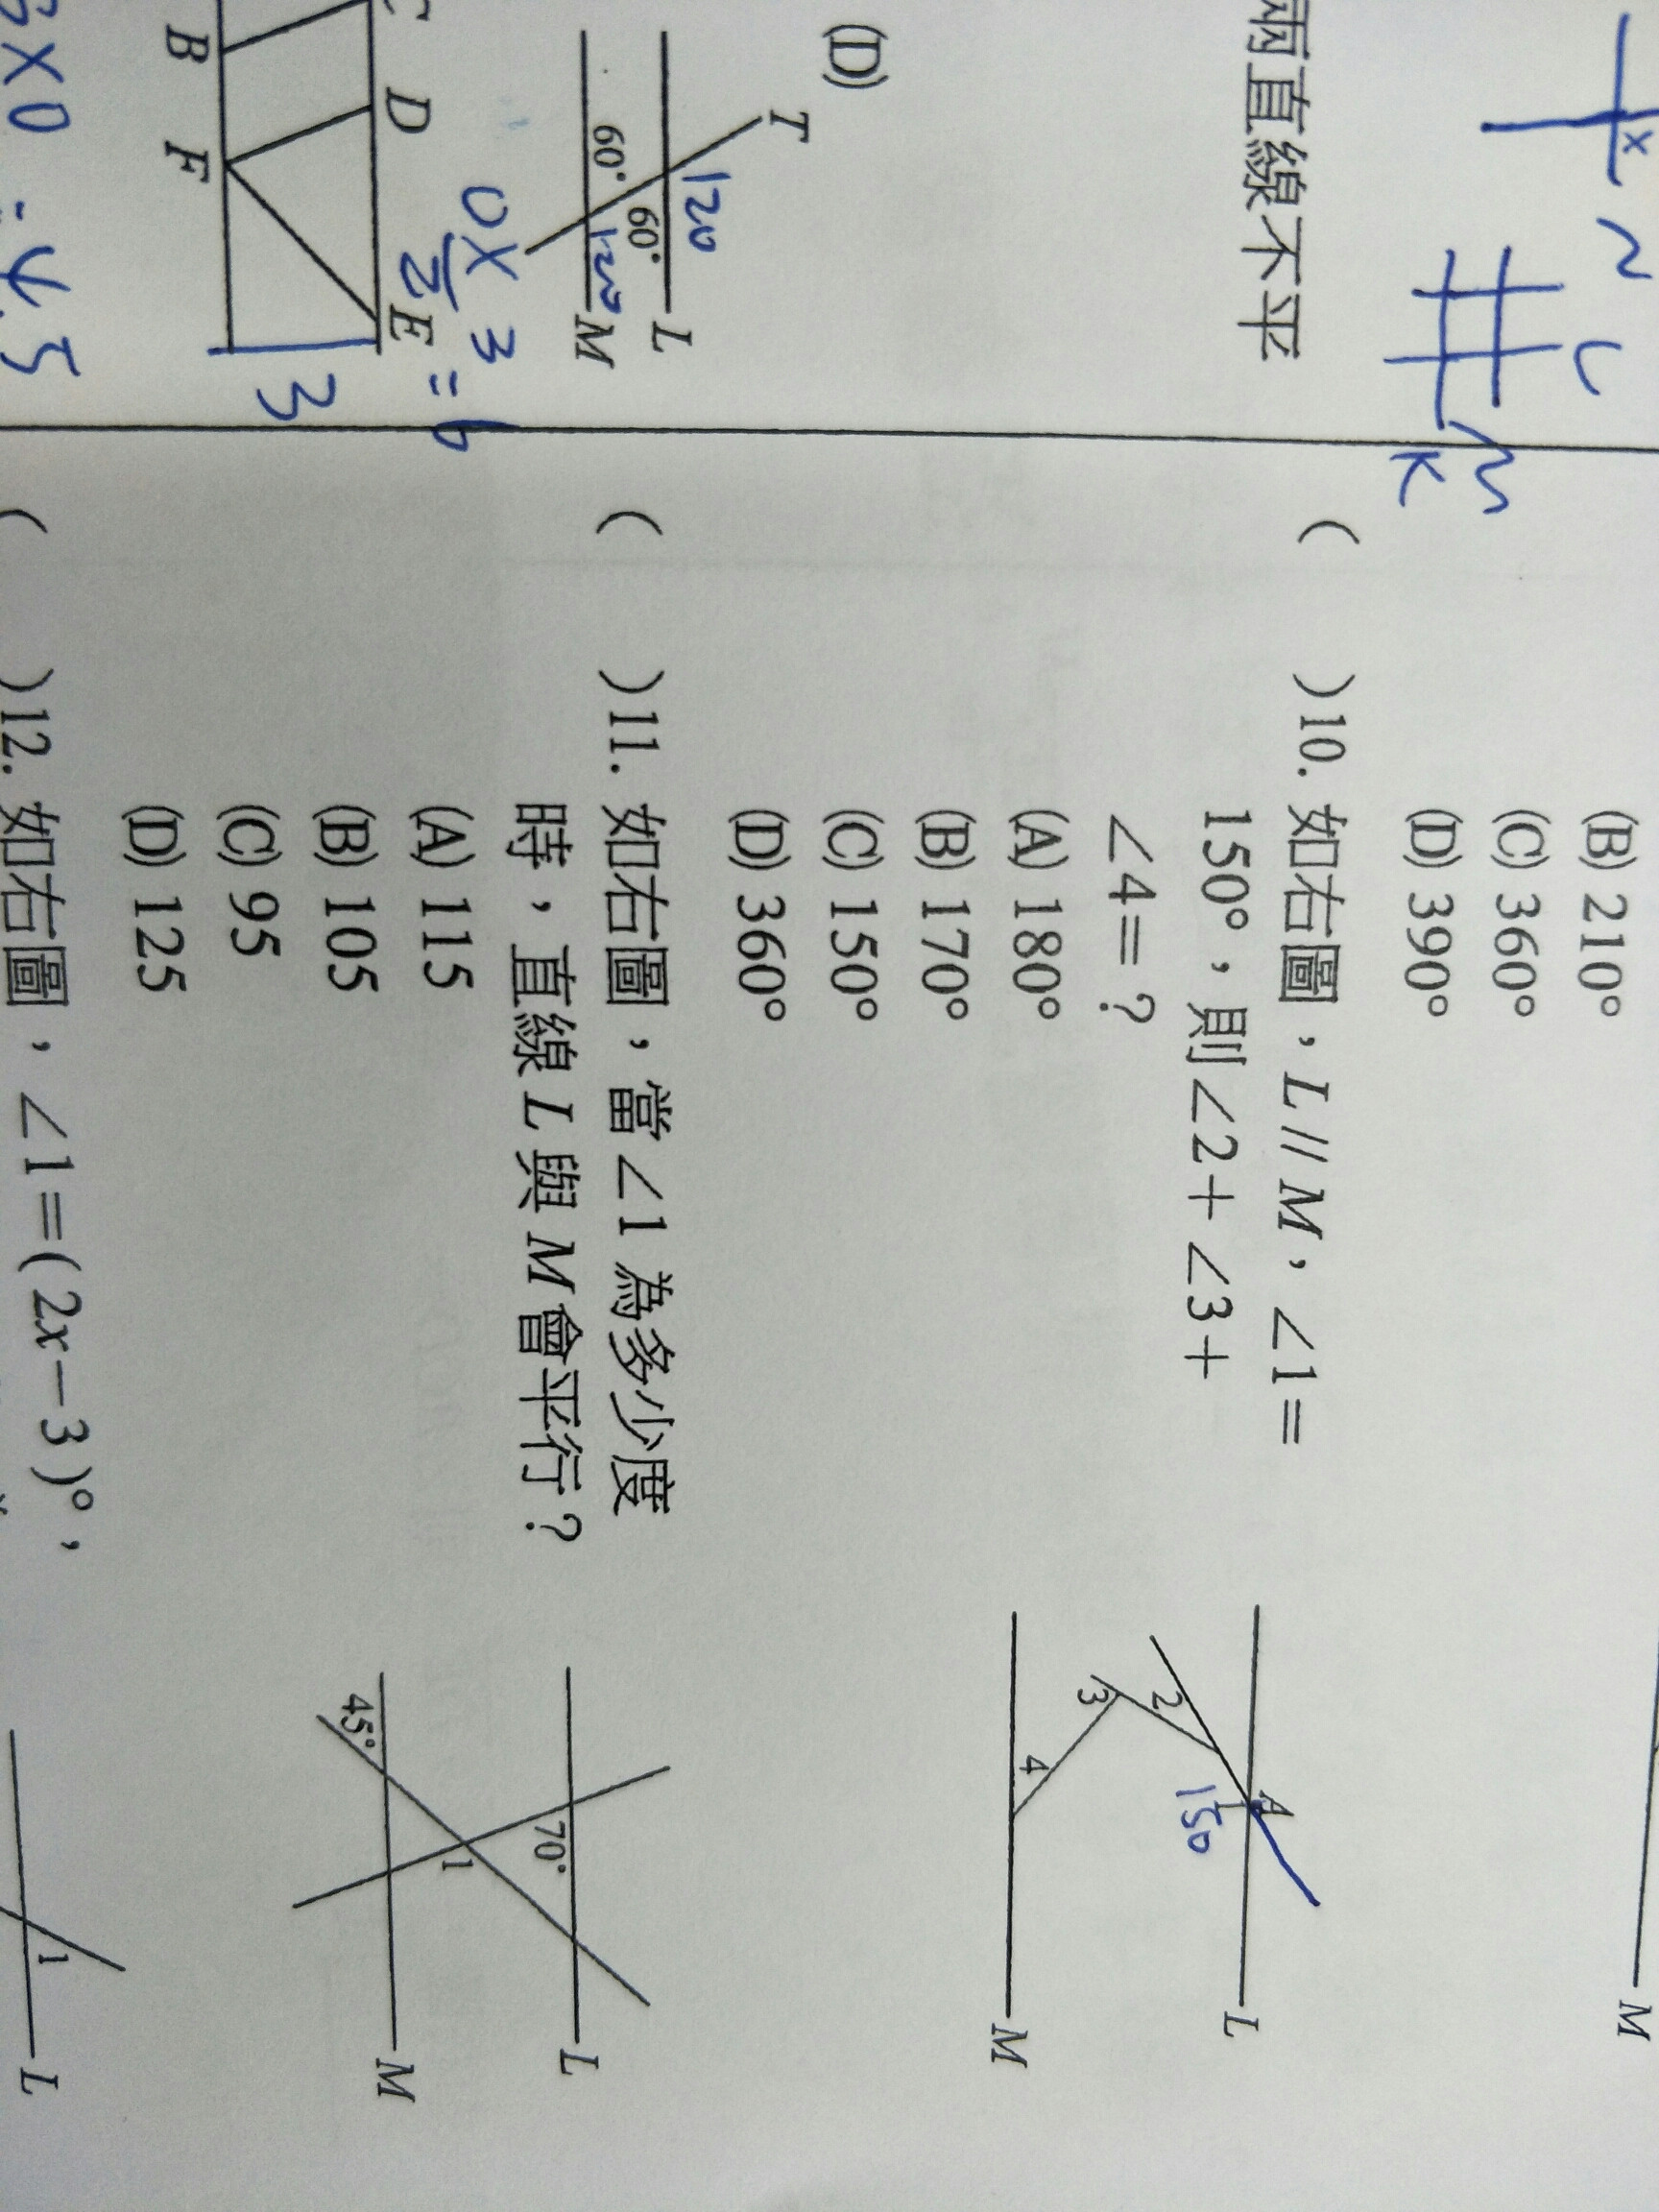 兩直線不平
(D)
T
120
60°
60°
120
L
M
C
D
E
B
F
3
3 = 6
2
4.5
L
M
K
(B) 210°
(C) 360°
(D) 390°
M
( )10. 如右圖,L//M,∠1=
150°,則∠2+∠3+
∠4=?
(A) 180°
(B) 170°
(C) 150°
(D) 360°
A
1
150
2
3
4
L
M
( )11. 如右圖,當∠1為多少度
時,直線L與M會平行?
(A) 115
(B) 105
(C) 95
(D) 125
70°
1
45°
L
M
( )12. 如右圖,∠1=(2x-3)°,
1
L